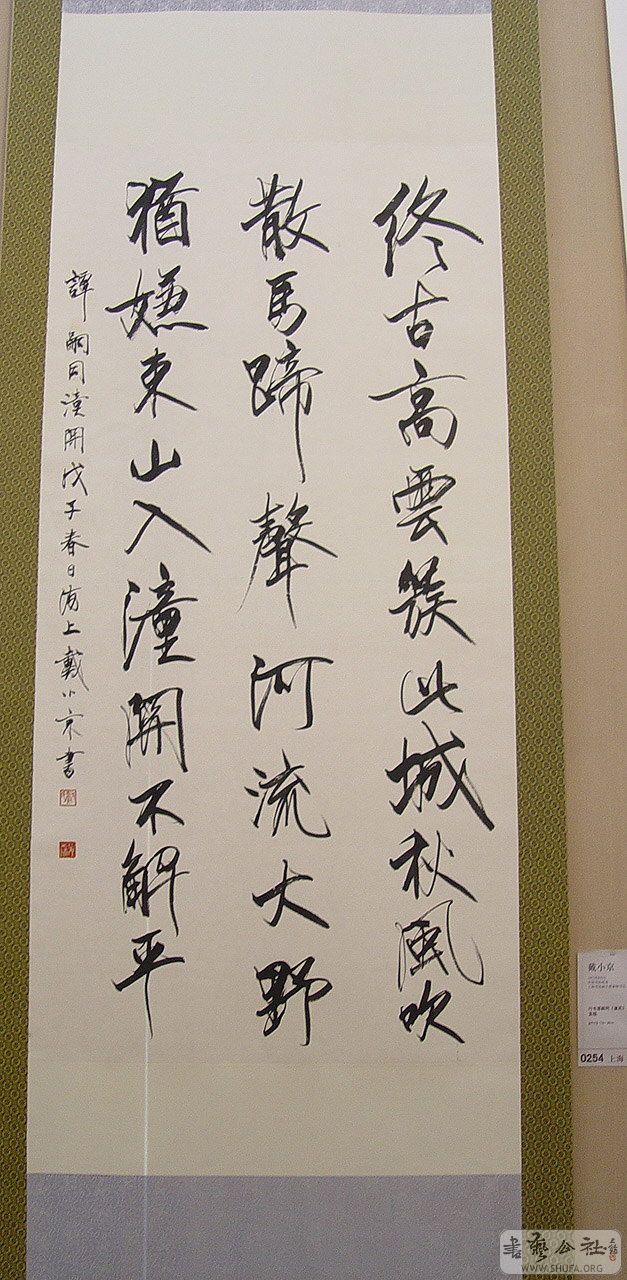 終古高雲簇此城秋風吹
散馬蹄聲河流大野
猶嫌束山入潼關不解平
譚嗣同潼關戊子春日海上戴小京書
戴小京
0254 上海
書藝公社
WWW.SHUFA.ORG